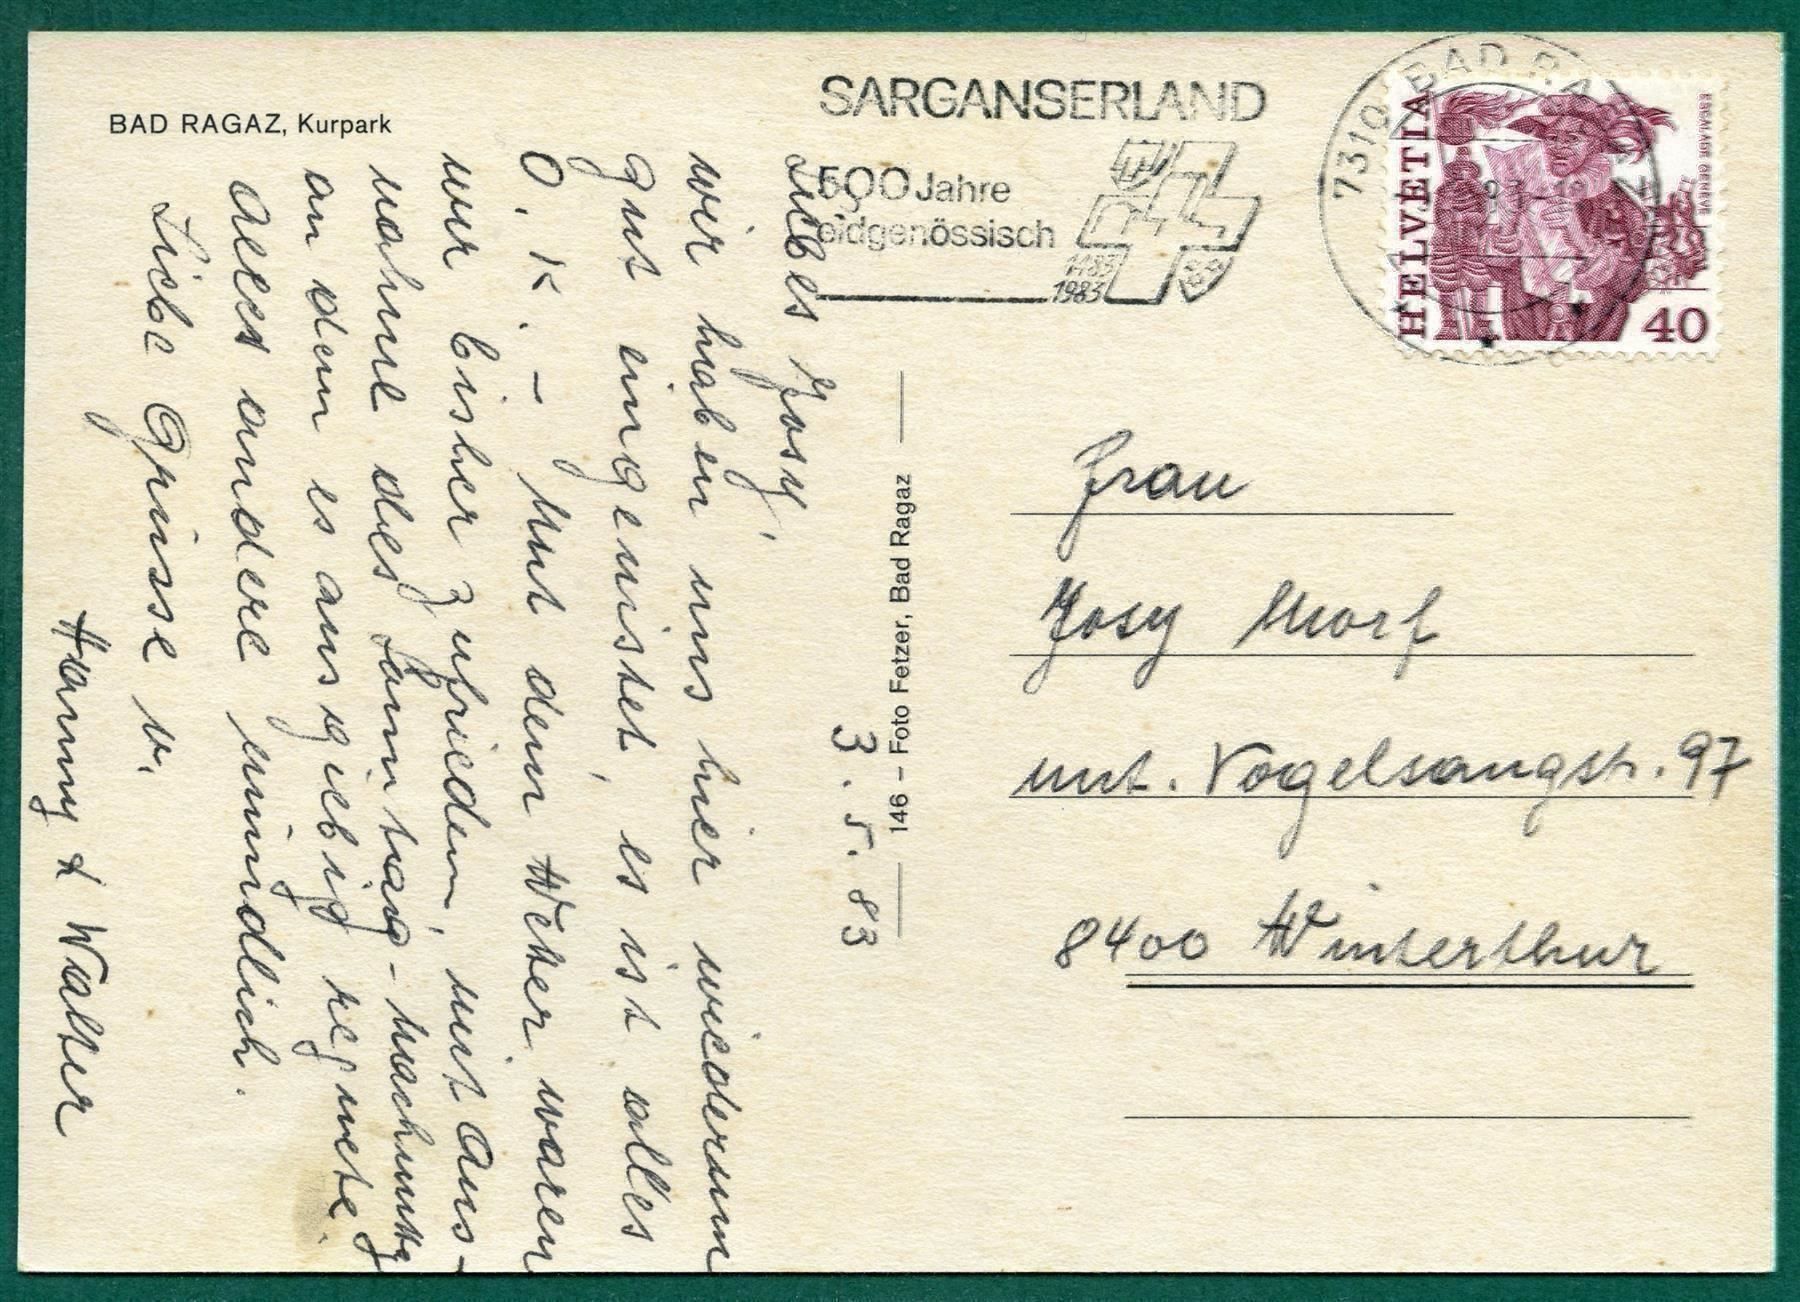 BAD RAGAZ, Kurpark
SARGANSERLAND
500 Jahre
eidgenössisch
1483
1983
7310 BAD RA
HELVETIA
ESCALADE GENÈVE
40
3. 5. 83
Liebes Josy,
wir haben uns hier wiederum
gut eingenistet, es ist alles
O. K. – Mit dem Wetter waren
wir bisher zufrieden, mit Aus-
nahme des Samstag-nachmittg
an dem es ausgiebig regnete.
Alles andere mündlich.
Liebe Grüsse v.
Hanny & Walter
146 – Foto Fetzer, Bad Ragaz
Frau
Josy Morf
unt. Vogelsangstr. 97
8400 Winterthur